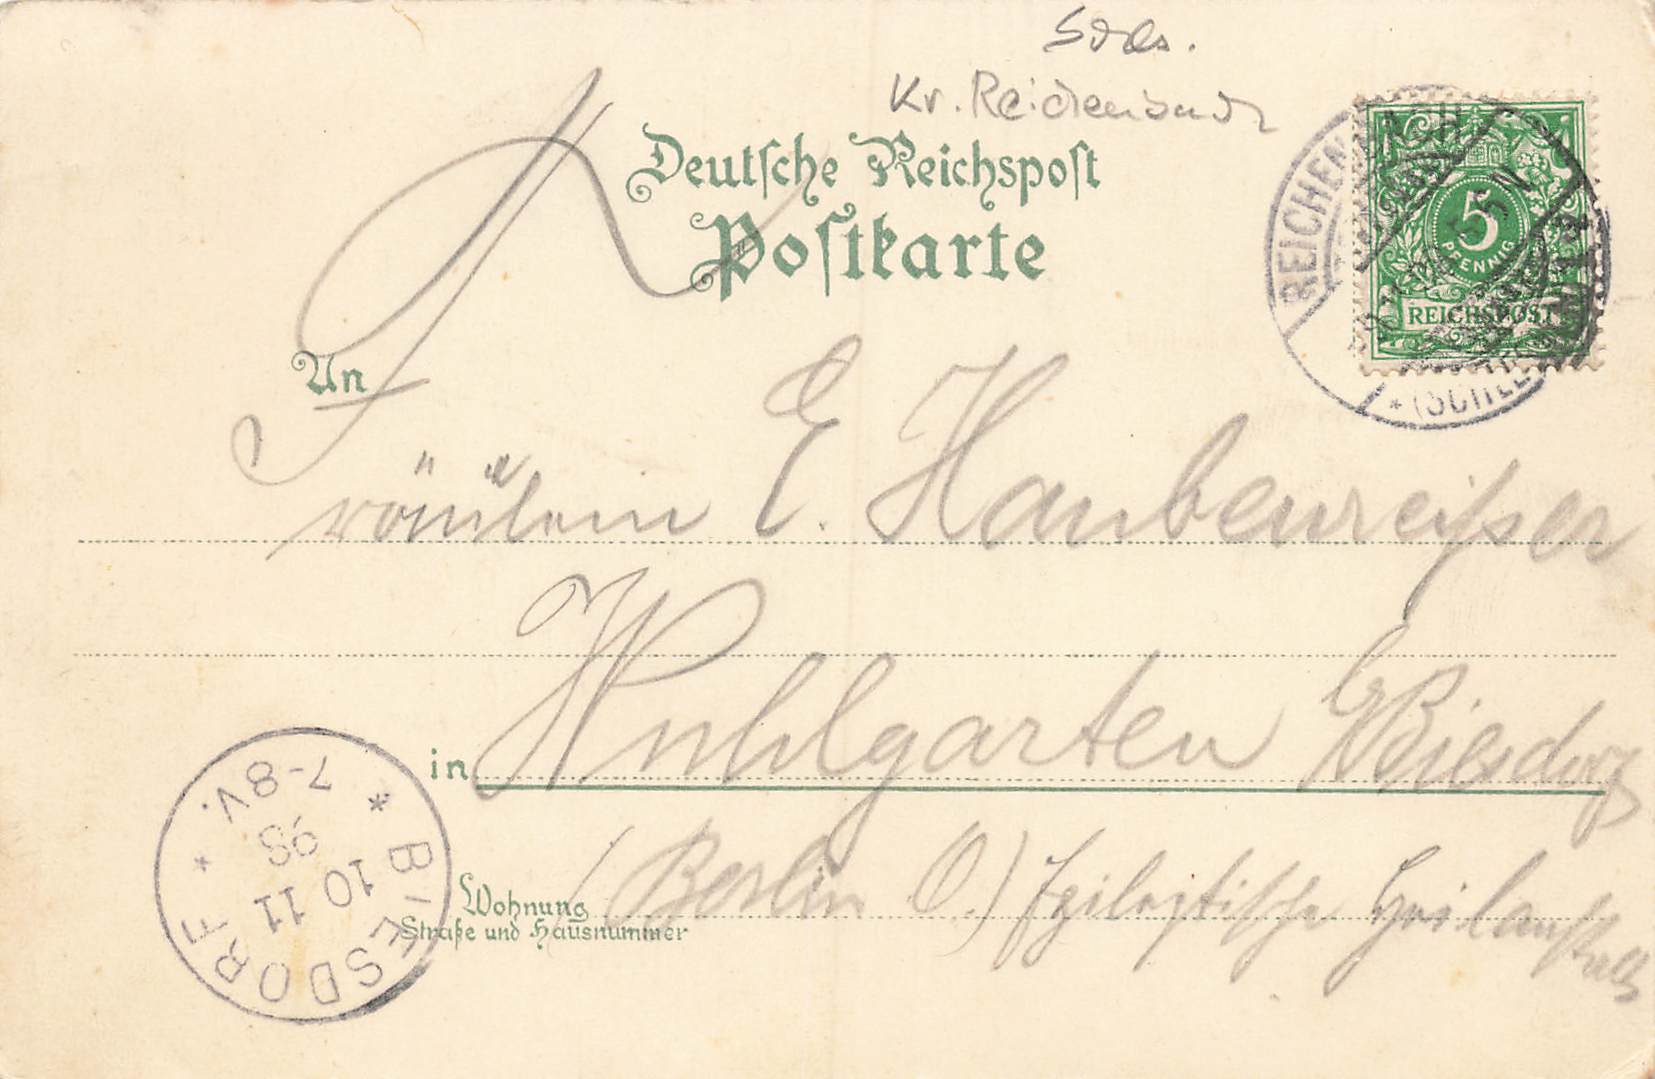 Schls.
Kr. Reichenbach
Deutsche Reichspost
Postkarte
REICHENBACH
(SCHLES
5
PFENNIG
REICHSPOST
An
Fräulein E. Haubenreißer
in Wuhlgarten b/Biesdorf
Wohnung (Berlin O.) Epileptische Heilanstalt
Straße und Hausnummer
* BIESDORF *
10 11
98
7-8V.